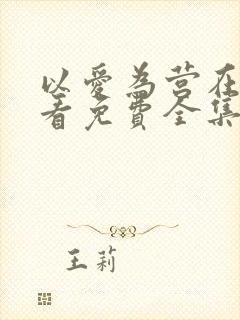 以爱为营在
看免费全集
王莉